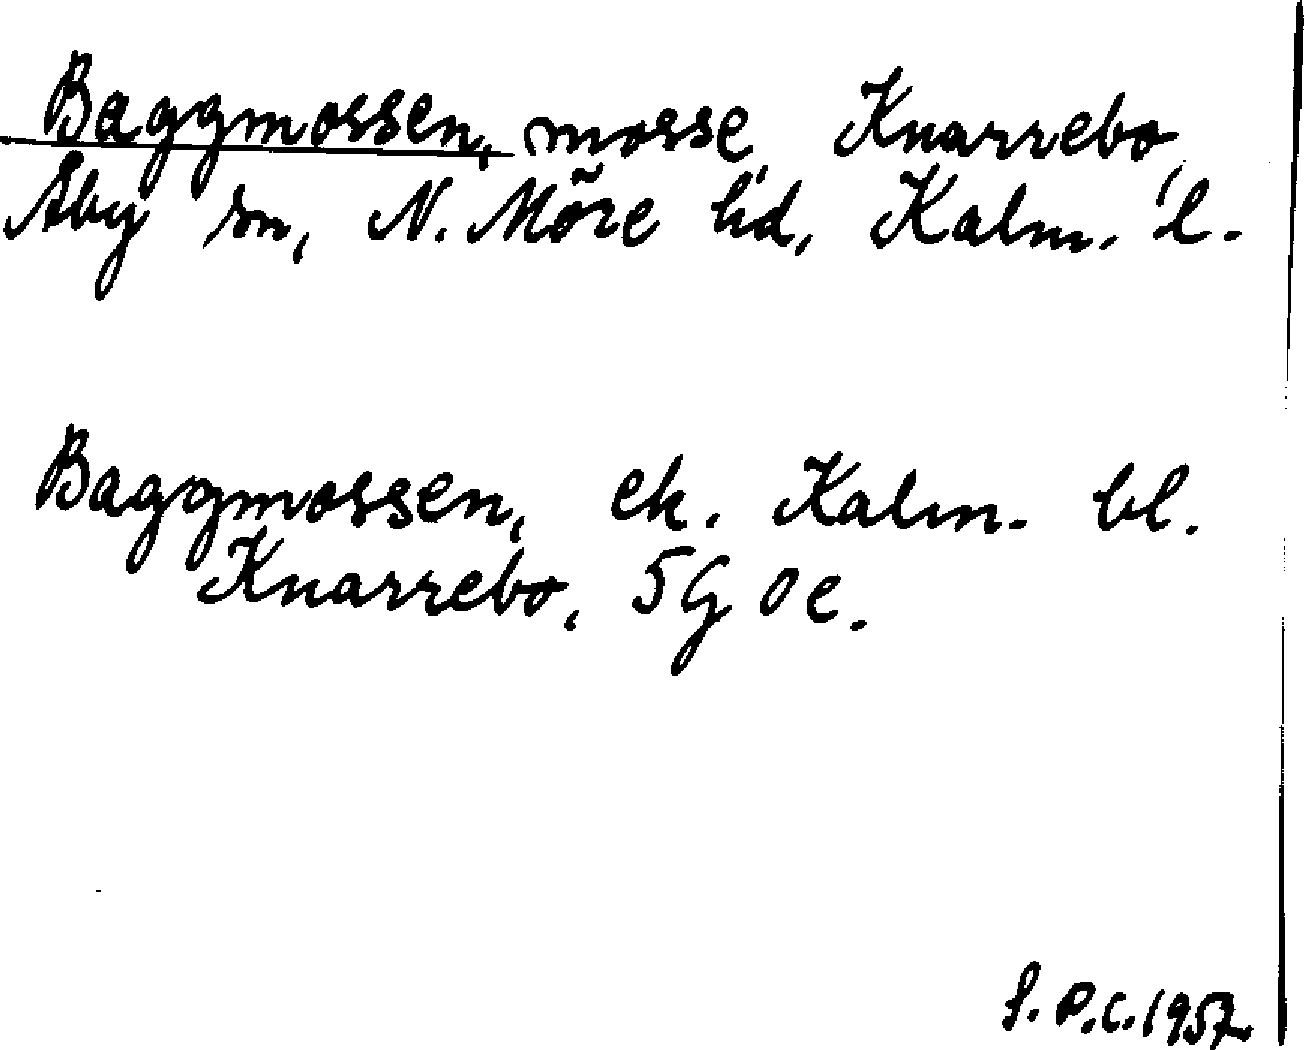 Baggmossen, mosse, Knarrebo,
Åby sn, N. Möre hd, Kalm. l.
Baggmossen, ek. Kalm. bl.
Knarrebo, 5G 0e.
S.P.C. 1957